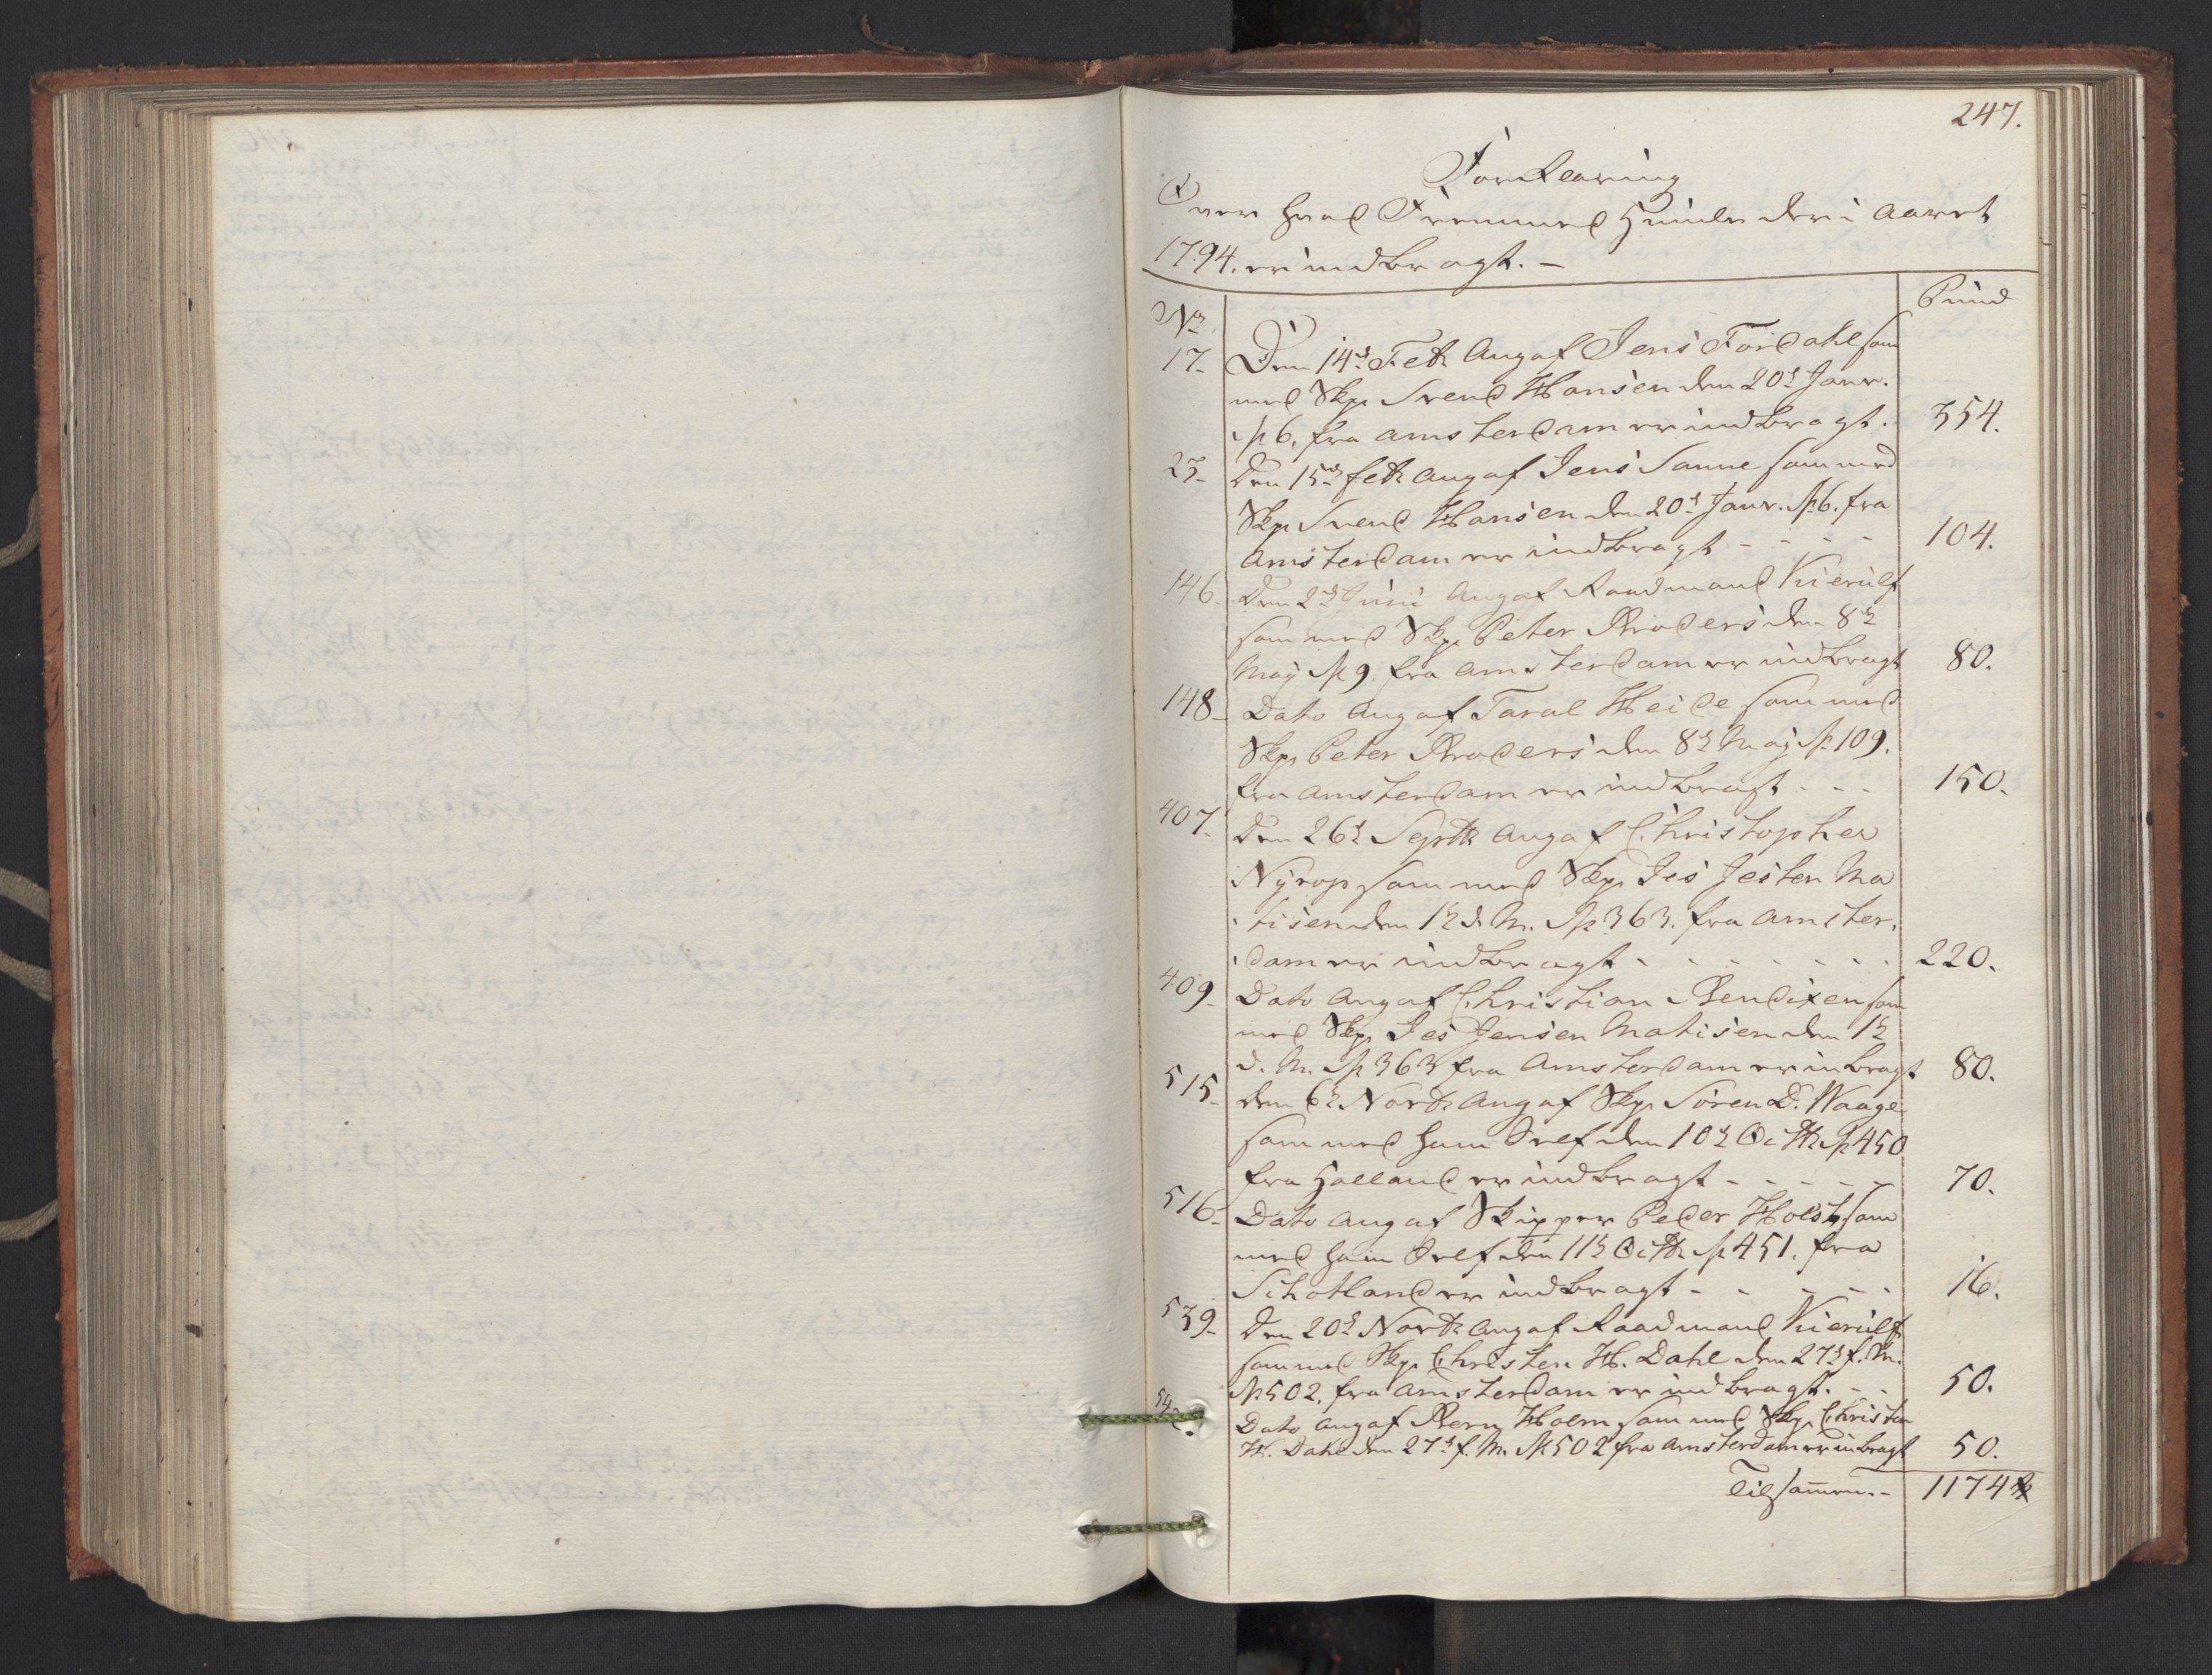 247.
Forklaring
Over hvad Fremmed Humle der i Aaret
1794. er indbragt. -
No
Pund
17. Den 14de Feb. Ang af Jens Fordahl som
med Skp. Svend Hansen den 20de Janr.
No 6. fra Amsterdam er indbragt. 354.
23. Den 15de Feb. ang af Jens Sanne som med
Skp. Svend Hansen den 20de Janr. No 6. fra
Amsterdam er indbragt - - - - 104.
146. Den 2de Juni Ang af Raadmand Kierulf
som med Skp. Peter Broders den 8de
May No 9. fra Amsterdam er indbragt 80.
148. Dato Ang af Taral Heide som med
Skp. Peter Broders den 8de May No 109.
fra Amsterdam er indbragt - - - 150.
407. Den 26de Septb. ang af Christopher
Nyrop som med Skp. Jes Jesten Ma
tisen den 1te d. M. No 363. fra Amster,
dam er indbragt - - - - - - - 220.
409. Dato ang af Christian Bendixen som
med Skp. Jes Jensen Matisen den 1te
d. M. No 363 fra Amsterdam er inbragt 80.
515. den 6te Novb. ang af Skp. Søren D. Waage
som med ham Self den 10de Octb. No 450
fra Holland er indbragt - - - - - 70.
516. Dato ang af Skipper Peder Holst som
med ham Self den 11te Octb. No 451. fra
Schotland er indbragt - - - - - 16.
539. Den 20de Novb. ang af Raadmand Kierulf
som med Skp. Christen H. Dahl den 27de f. M.
No 502. fra Amsterdam er indbragt. - - 50.
Dato ang af Bern Holm som med Skp. Christen
H. Dahl den 27de f. M. No 502 fra Amsterdam er inbragt 50.
Tilsamen.- 1174 ℔